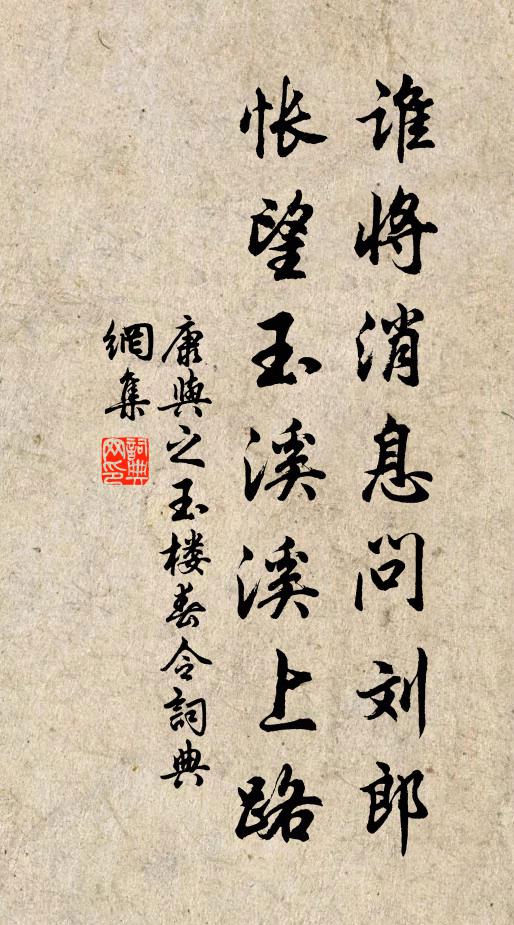 谁将消息问刘郎
怅望玉溪溪上路
康與之玉楼春令詞典
網集
詞典网印